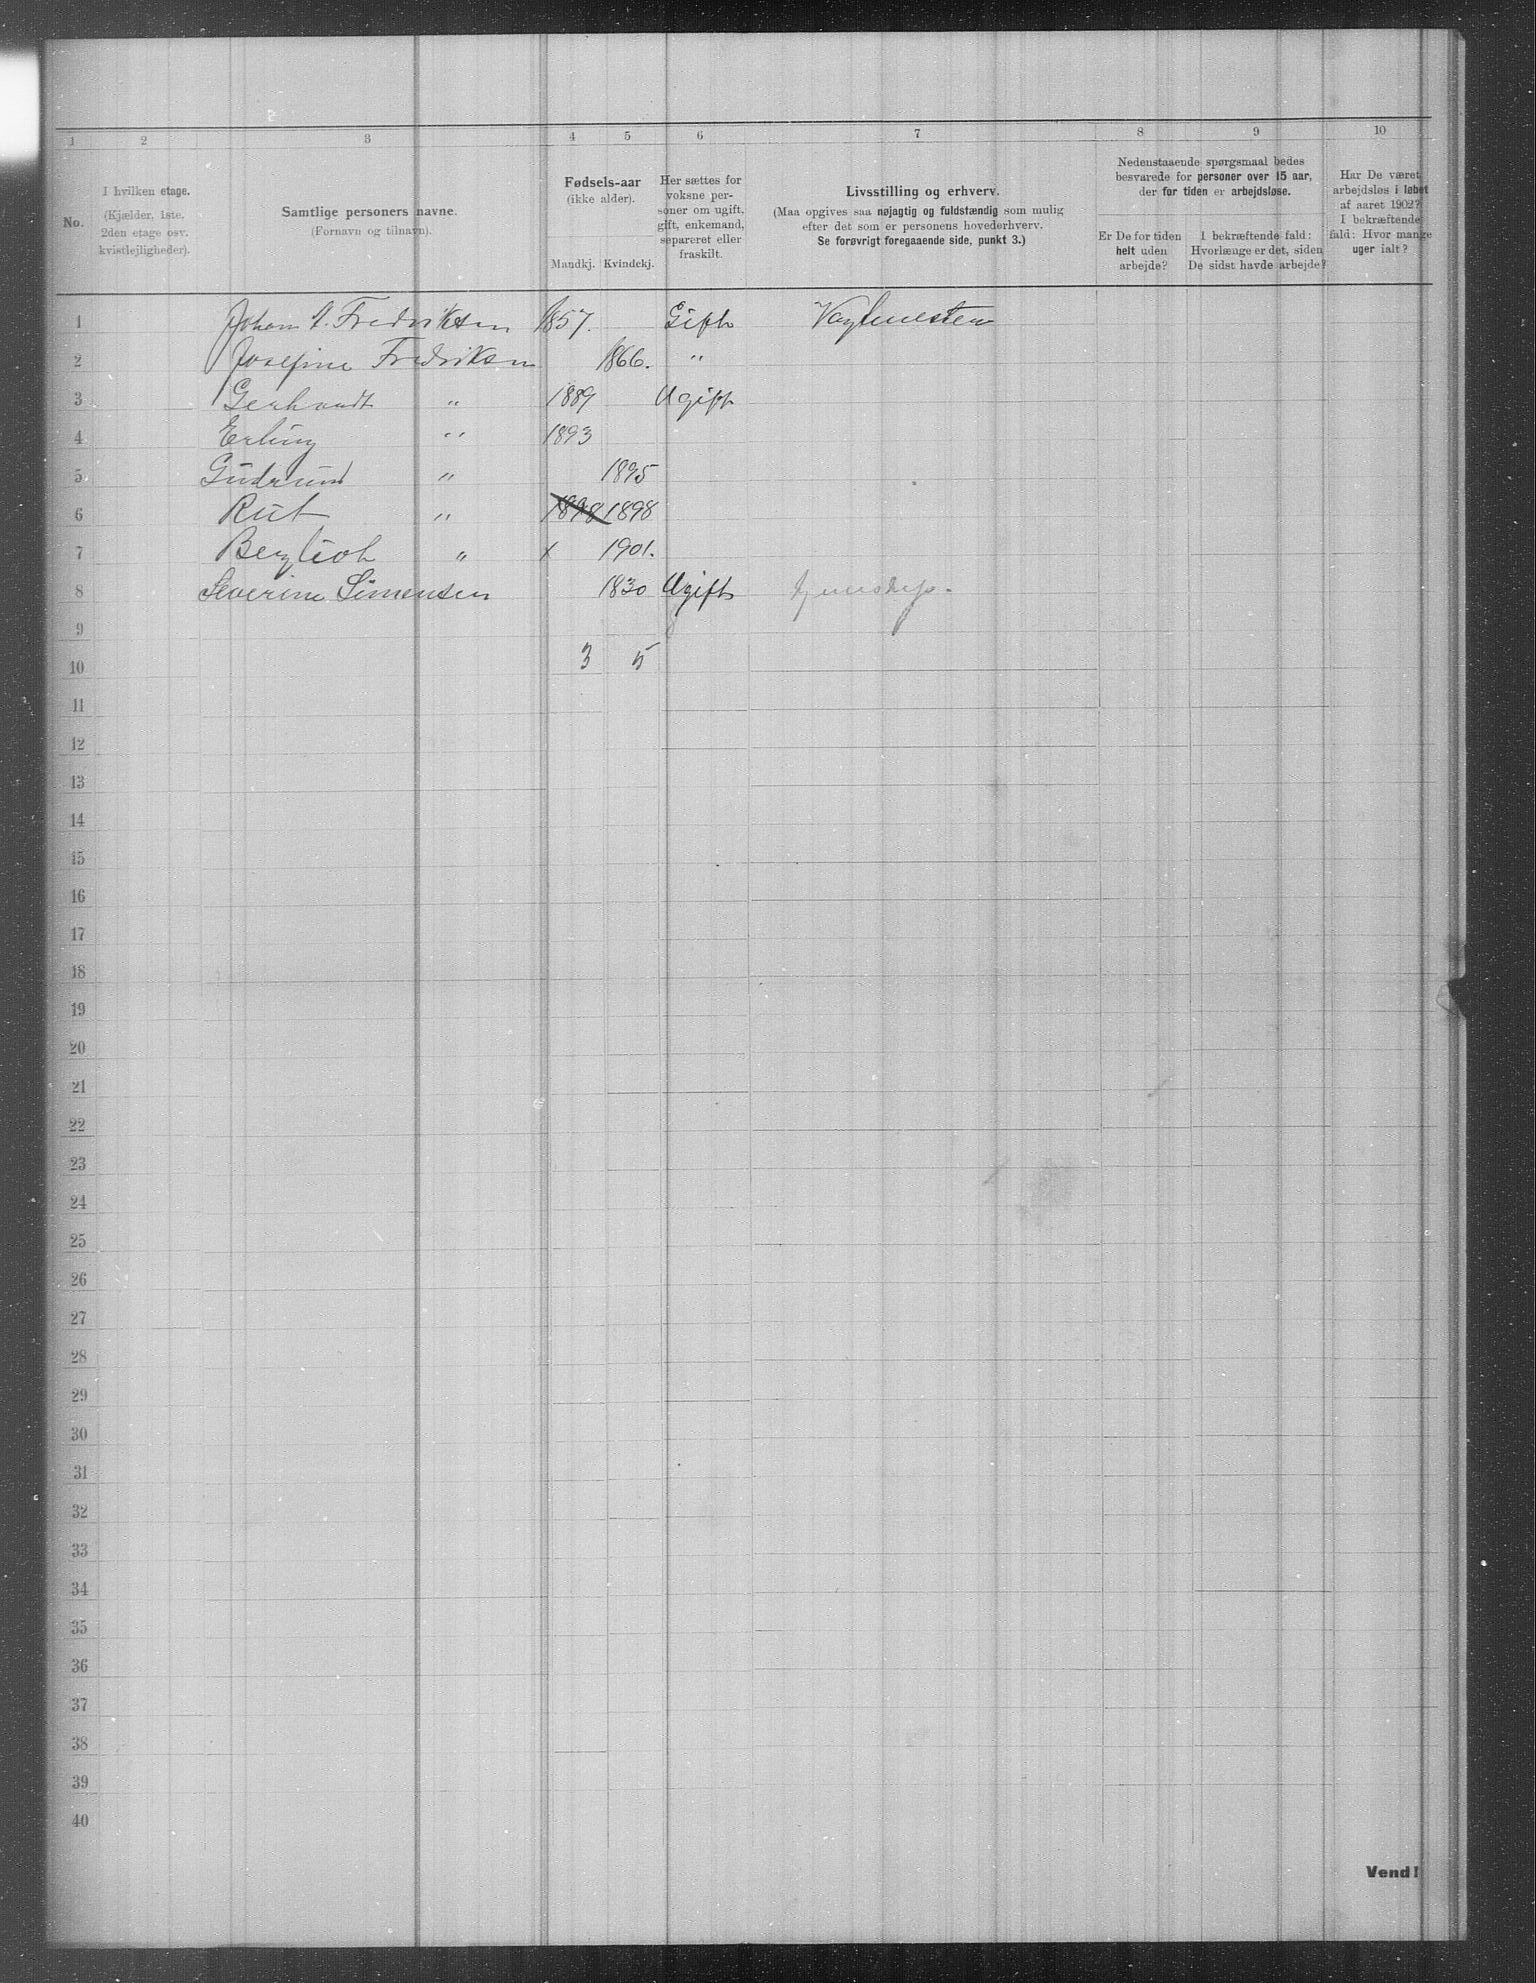 1 2 3 4 5 6 7 8 9 10
No.
I hvilken etage.
(Kjælder, 1ste, 2den etage osv. kvistlejligheder).
Samtlige personers navne.
(Fornavn og tilnavn).
Fødsels-aar
(ikke alder).
Mandkj. Kvindekj.
Her sættes for voksne personer om ugift, gift, enkemand, separeret eller fraskilt.
Livsstilling og erhverv.
(Maa opgives saa nøjagtig og fuldstændig som mulig
efter det som er personens hovederhverv.
Se forøvrigt foregaaende side, punkt 3.)
Nedenstaaende spørgsmaal bedes
besvarede for personer over 15 aar,
der for tiden er arbejdsløse.
Er De for tiden
helt uden
arbejde?
I bekræftende fald:
Hvorlænge er det, siden
De sidst havde arbejde?
Har De været
arbejdsløs i løbet
af aaret 1902?
I bekræftende
fald: Hvor mange
uger ialt?
1 Johan Fredriksen 1857. Gift Vagtmester
2 Josefine Fredriksen 1866. "
3 Gerhardt " 1889 Ugift
4 Erling " 1893
5 Gudrund " 1895
6 Rut " 1898 1898
7 Bergliot " x 1901.
8 Severine Simensen 1830 Ugift
9
10 3 5
11
12
13
14
15
16
17
18
19
20
21
22
23
24
25
26
27
28
29
30
31
32
33
34
35
36
37
38
39
40
Vend!